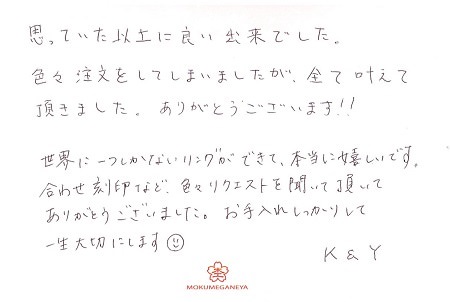 思っていた以上に良い出来でした。
色々注文をしてしまいましたが、全て叶えて
頂きました。ありがとうございます!!
世界に一つしかないリングができて、本当に嬉しいです。
合わせ刻印など、色々リクエストを聞いて頂いて
ありがとうございました。お手入れしっかりして
一生大切にします
K & Y
MOKUMEGANEYA